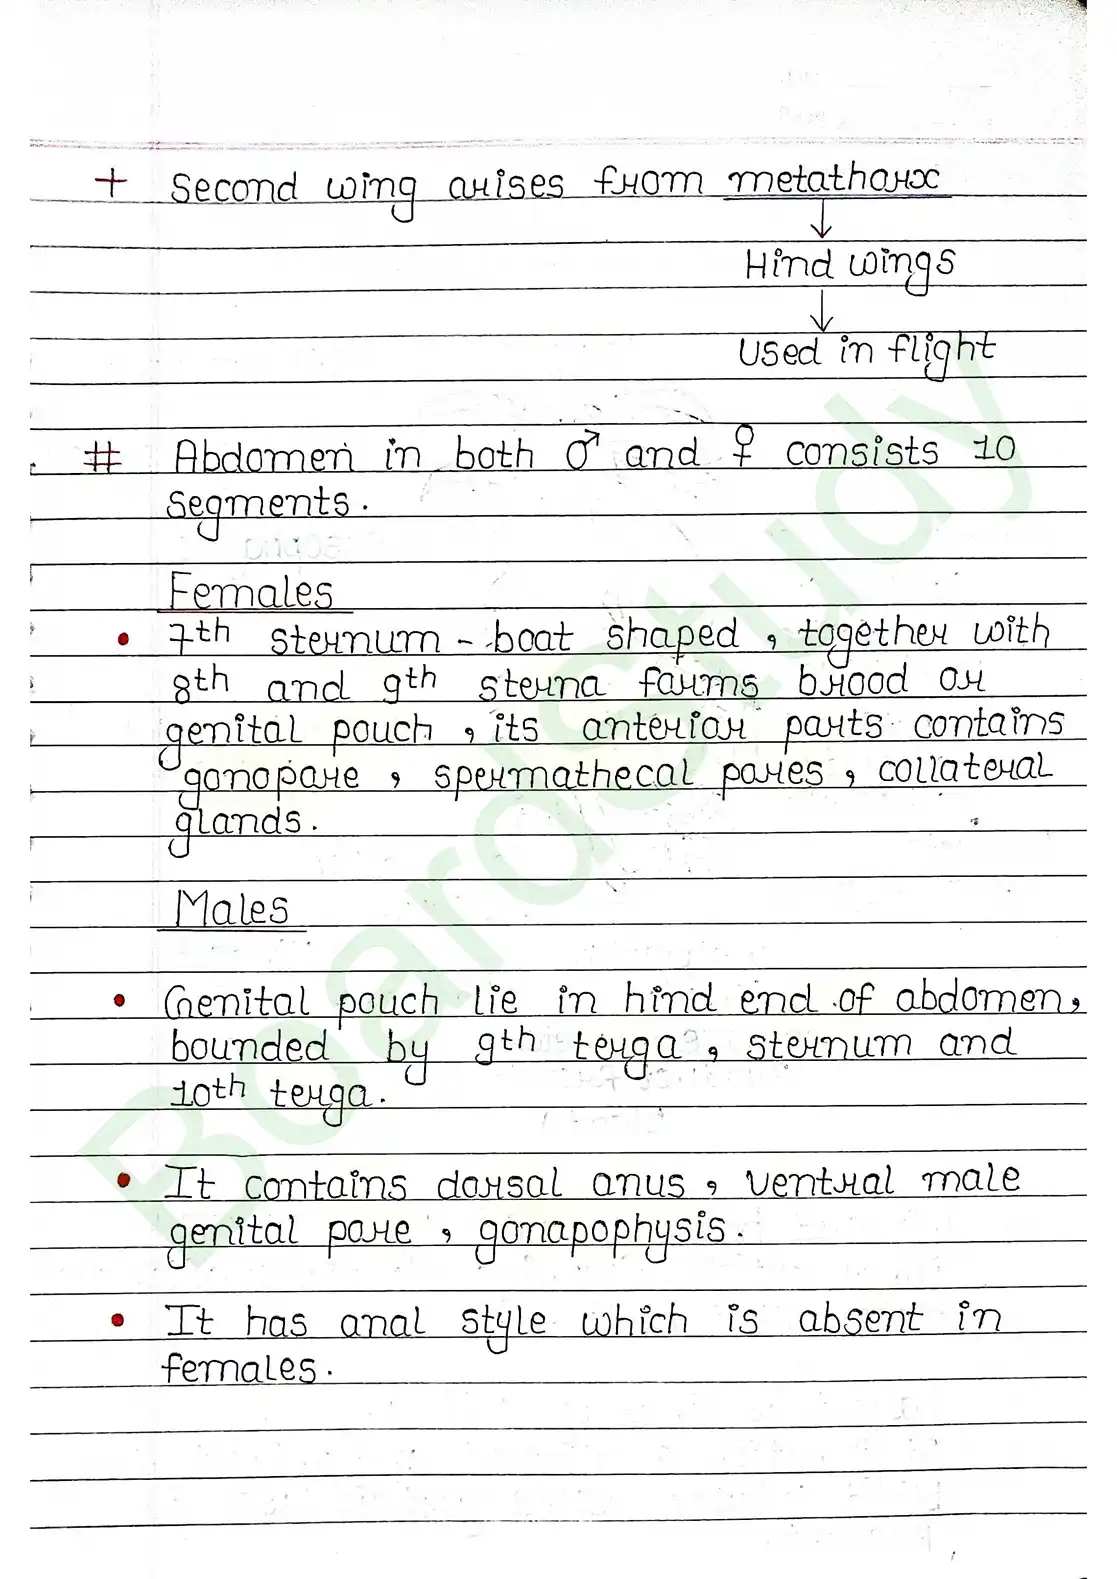 + Second wing arises from metathorx
↓
Hind wings
↓
Used in flight
# Abdomen in both ♂ and ♀ consists 10
segments.
Females
• 7th sternum - boat shaped, together with
8th and 9th sterna forms brood or
genital pouch, its anterior parts contains
gonopore, spermathecal pores, collateral
glands.
Males
• Genital pouch lie in hind end of abdomen,
bounded by 9th terga, sternum and
10th terga.
• It contains dorsal anus, ventral male
genital pore, gonapophysis.
• It has anal style which is absent in
females.
BoardStudy